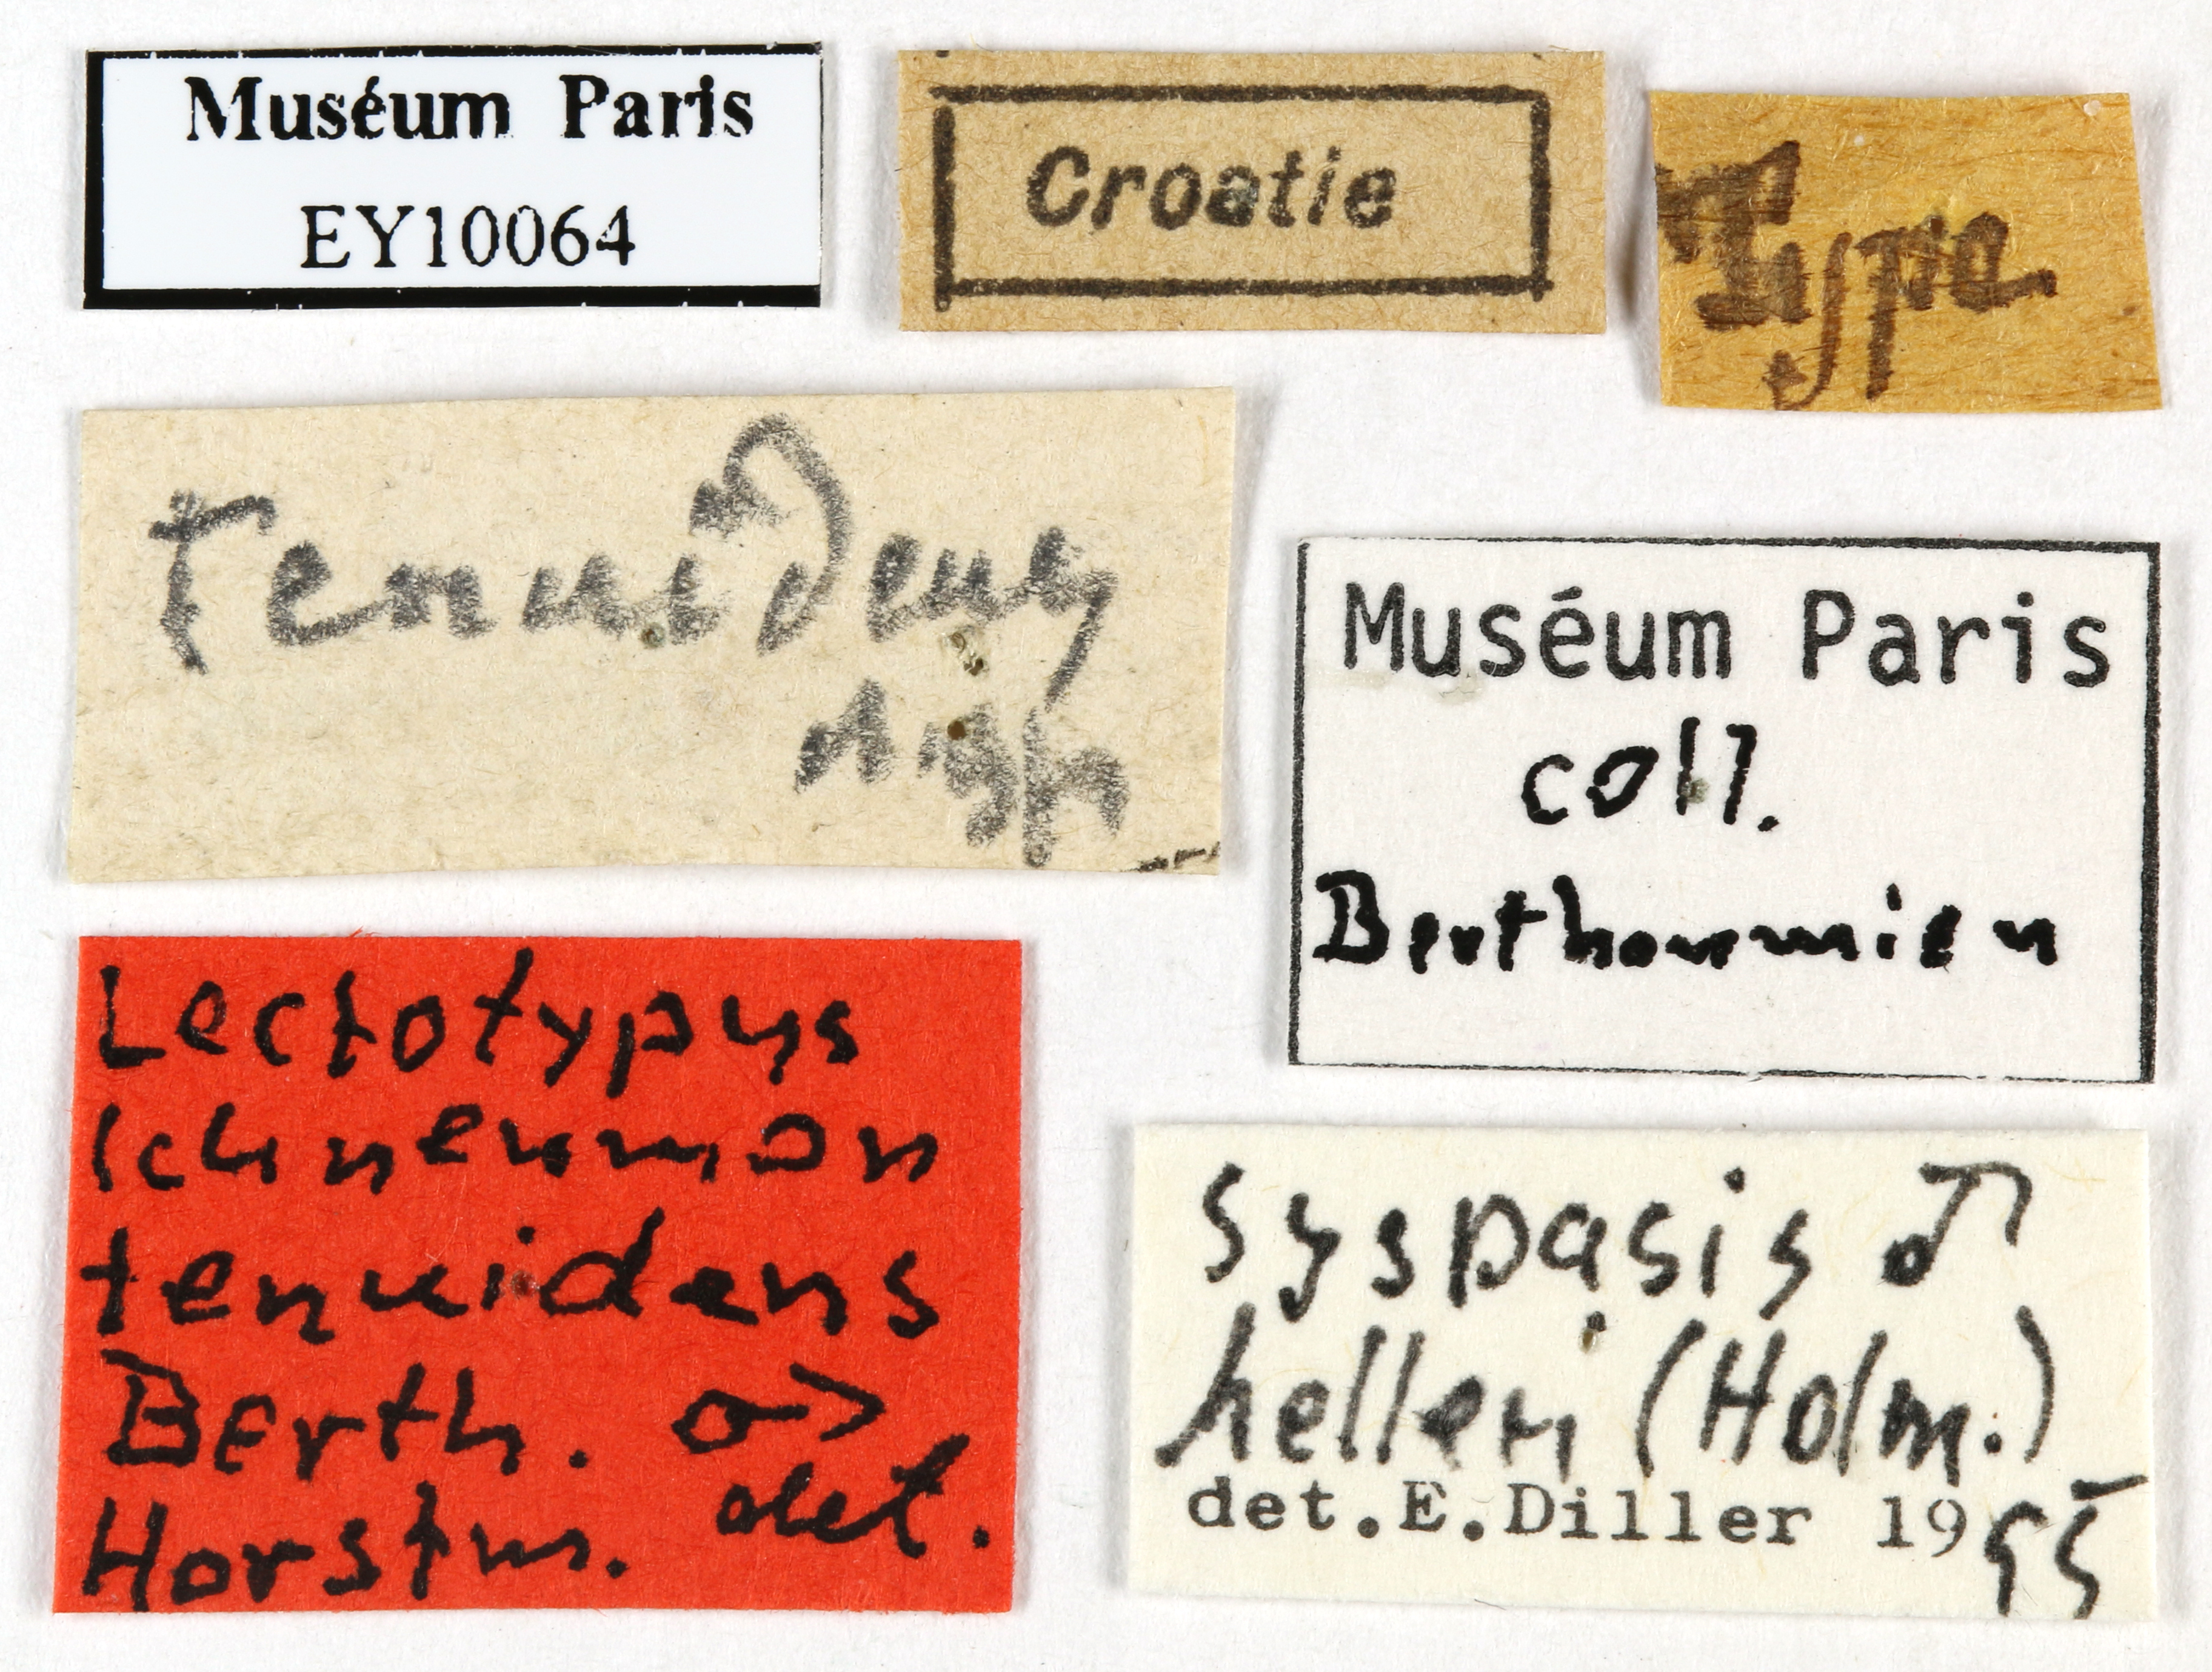 Muséum Paris
EY10064
Croatie
Type
Tenuidens
Muséum Paris
coll.
Berthoumieu
Lectotypus
Ichneumon
tenuidens
Berth. ♂
Horstm. det.
Syspasis ♂
helleri (Holm.)
det.E.Diller 1995